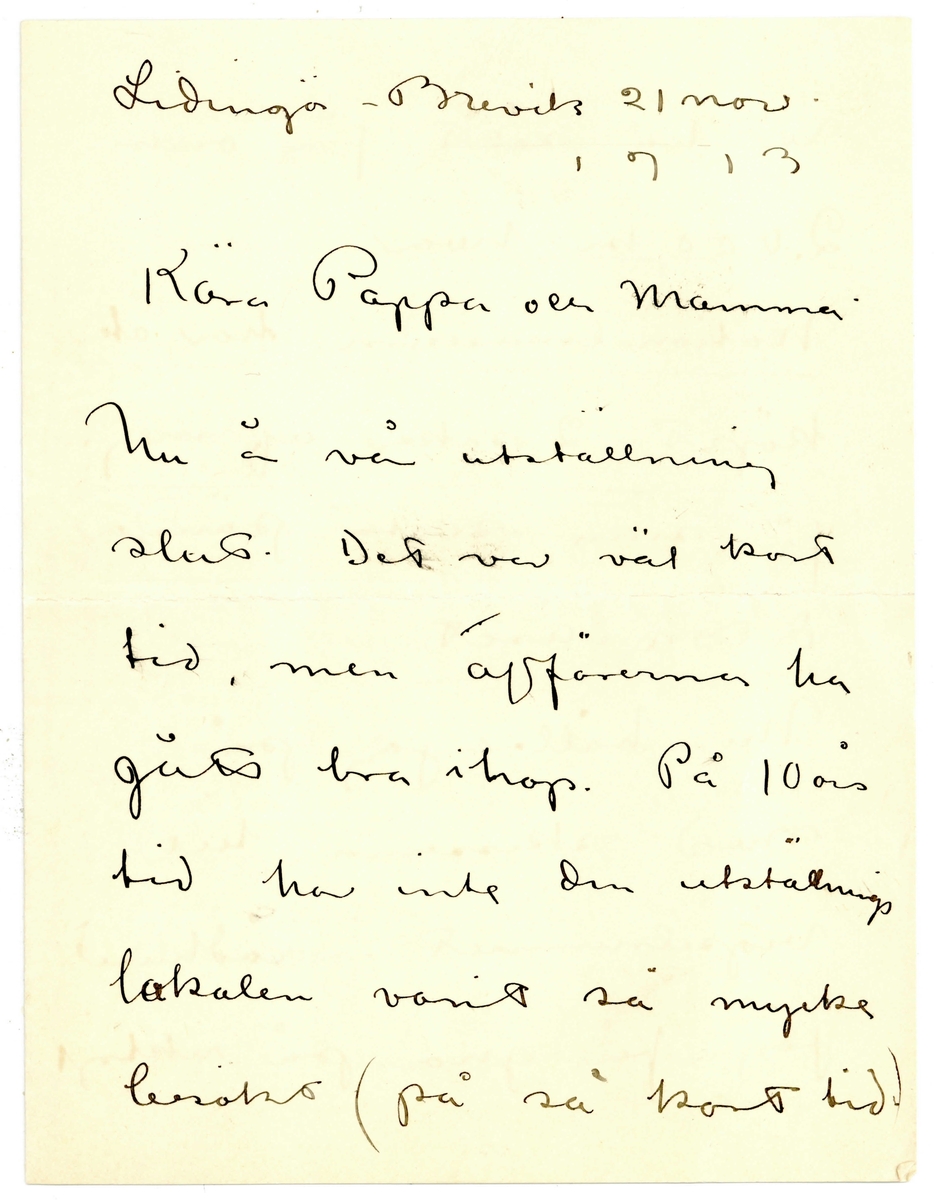 Lidingö - Brevik 21 nov.
1913
Kära Pappa och Mamma
Nu ä vår utställning
slut. Det var väl kort
tid, men affärerna ha
gått bra ihop. På 10 års
tid har inte den utställnings
lokalen varit så mycke
besökt (på så kort tid.)